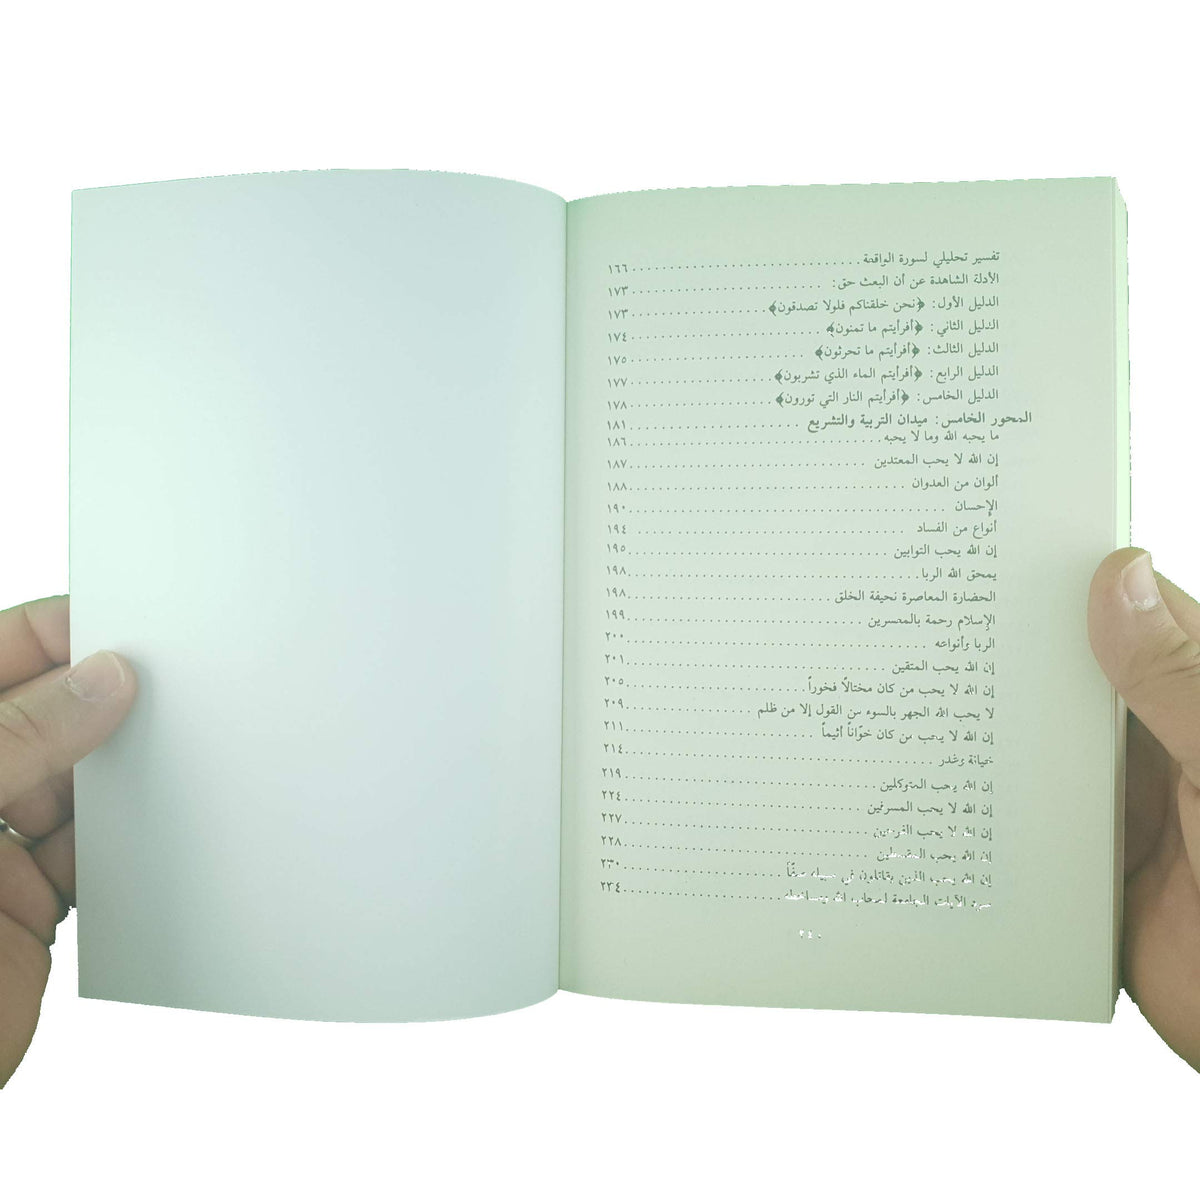 تفسير تحليلي لسورة الواقعة ............................ ١٦٦
الأدلة الشاهدة عن أن البعث حق: ...................... ١٧٣
الدليل الأول: ﴿نحن خلقناكم فلولا تصدقون﴾ ................... ١٧٣
الدليل الثاني: ﴿أفرأيتم ما تمنون﴾ ........................ ١٧٤
الدليل الثالث: ﴿أفرأيتم ما تحرثون﴾ ....................... ١٧٥
الدليل الرابع: ﴿أفرأيتم الماء الذي تشربون﴾ ................... ١٧٧
الدليل الخامس: ﴿أفرأيتم النار التي تورون﴾ ................... ١٧٨
المحور الخامس: ميدان التربية والتشريع ...................... ١٨١
ما يحبه الله وما لا يحبه ............................. ١٨٦
إن الله لا يحب المعتدين ............................ ١٨٧
ألوان من العدوان ................................. ١٨٨
الإحسان ...................................... ١٩٠
أنواع من الفساد ................................. ١٩٤
إن الله يحب التوابين .............................. ١٩٥
يمحق الله الربا .................................. ١٩٨
الحضارة المعاصرة نحيفة الخلق ....................... ١٩٨
الإسلام رحمة بالمعسرين ............................ ١٩٩
الربا وأنواعه ................................... ٢٠٠
إن الله يحب المتقين .............................. ٢٠١
إن الله لا يحب من كان مختالاً فخوراً .................... ٢٠٥
لا يحب الله الجهر بالسوء من القول إلا من ظلم ................ ٢٠٩
إن الله لا يحب من كان خوّاناً أثيماً ..................... ٢١١
خيانة وغدر .................................... ٢١٤
إن الله يحب المتوكلين ............................. ٢١٩
إن الله لا يحب المسرفين ........................... ٢٢٤
إن الله لا يحب الفرحين ............................ ٢٢٧
إن الله يحب المقسطين ............................ ٢٢٨
إن الله يحب الذين يقاتلون في سبيله صفّاً ................... ٢٣٠
سرد الآيات الجامعة لمحاب الله ومساخطه ................... ٢٣٤
٢٤٠